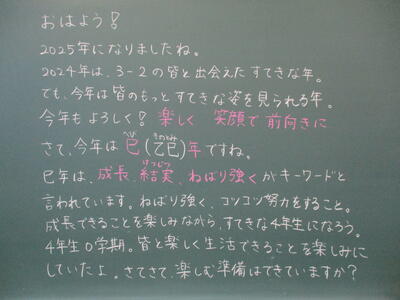 おはよう！
2025年になりましたね。
2024年は、3-2の皆と出会えたすてきな年。
でも、今年は皆のもっとすてきな姿を見られる年。
今年もよろしく？ 楽しく 笑顔で 前向きに
さて、今年は巳(乙巳)年ですね。
へび きのとみ
巳年は、成長、結実、ねばり強くがキーワードと
けつじつ
言われています。ねばり強く、コツコツ努力をすること。
成長できることを楽しみながら、すてきな4年生になろう。
4年生0学期。皆と楽しく生活できることを楽しみに
していたよ。さてさて、楽しむ準備はできていますか？